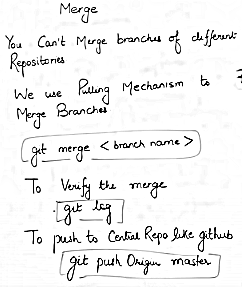 Merge
You Can't Merge branches of different
Repositories
We use Pulling Mechanism to
Merge Branches
git merge < branch name >
To Verify the merge
git log
To push to Central Repo like github
git push Origin master